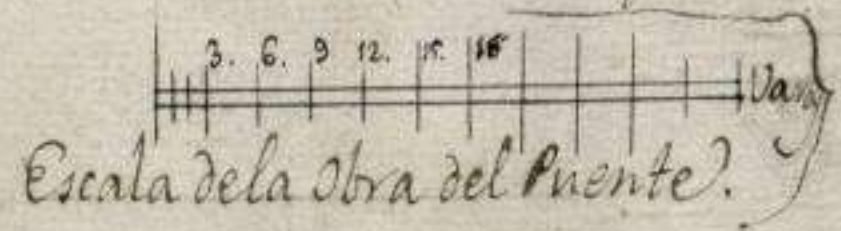 3. 6. 9 12. 15. 18
Escala dela Obra del Puente.